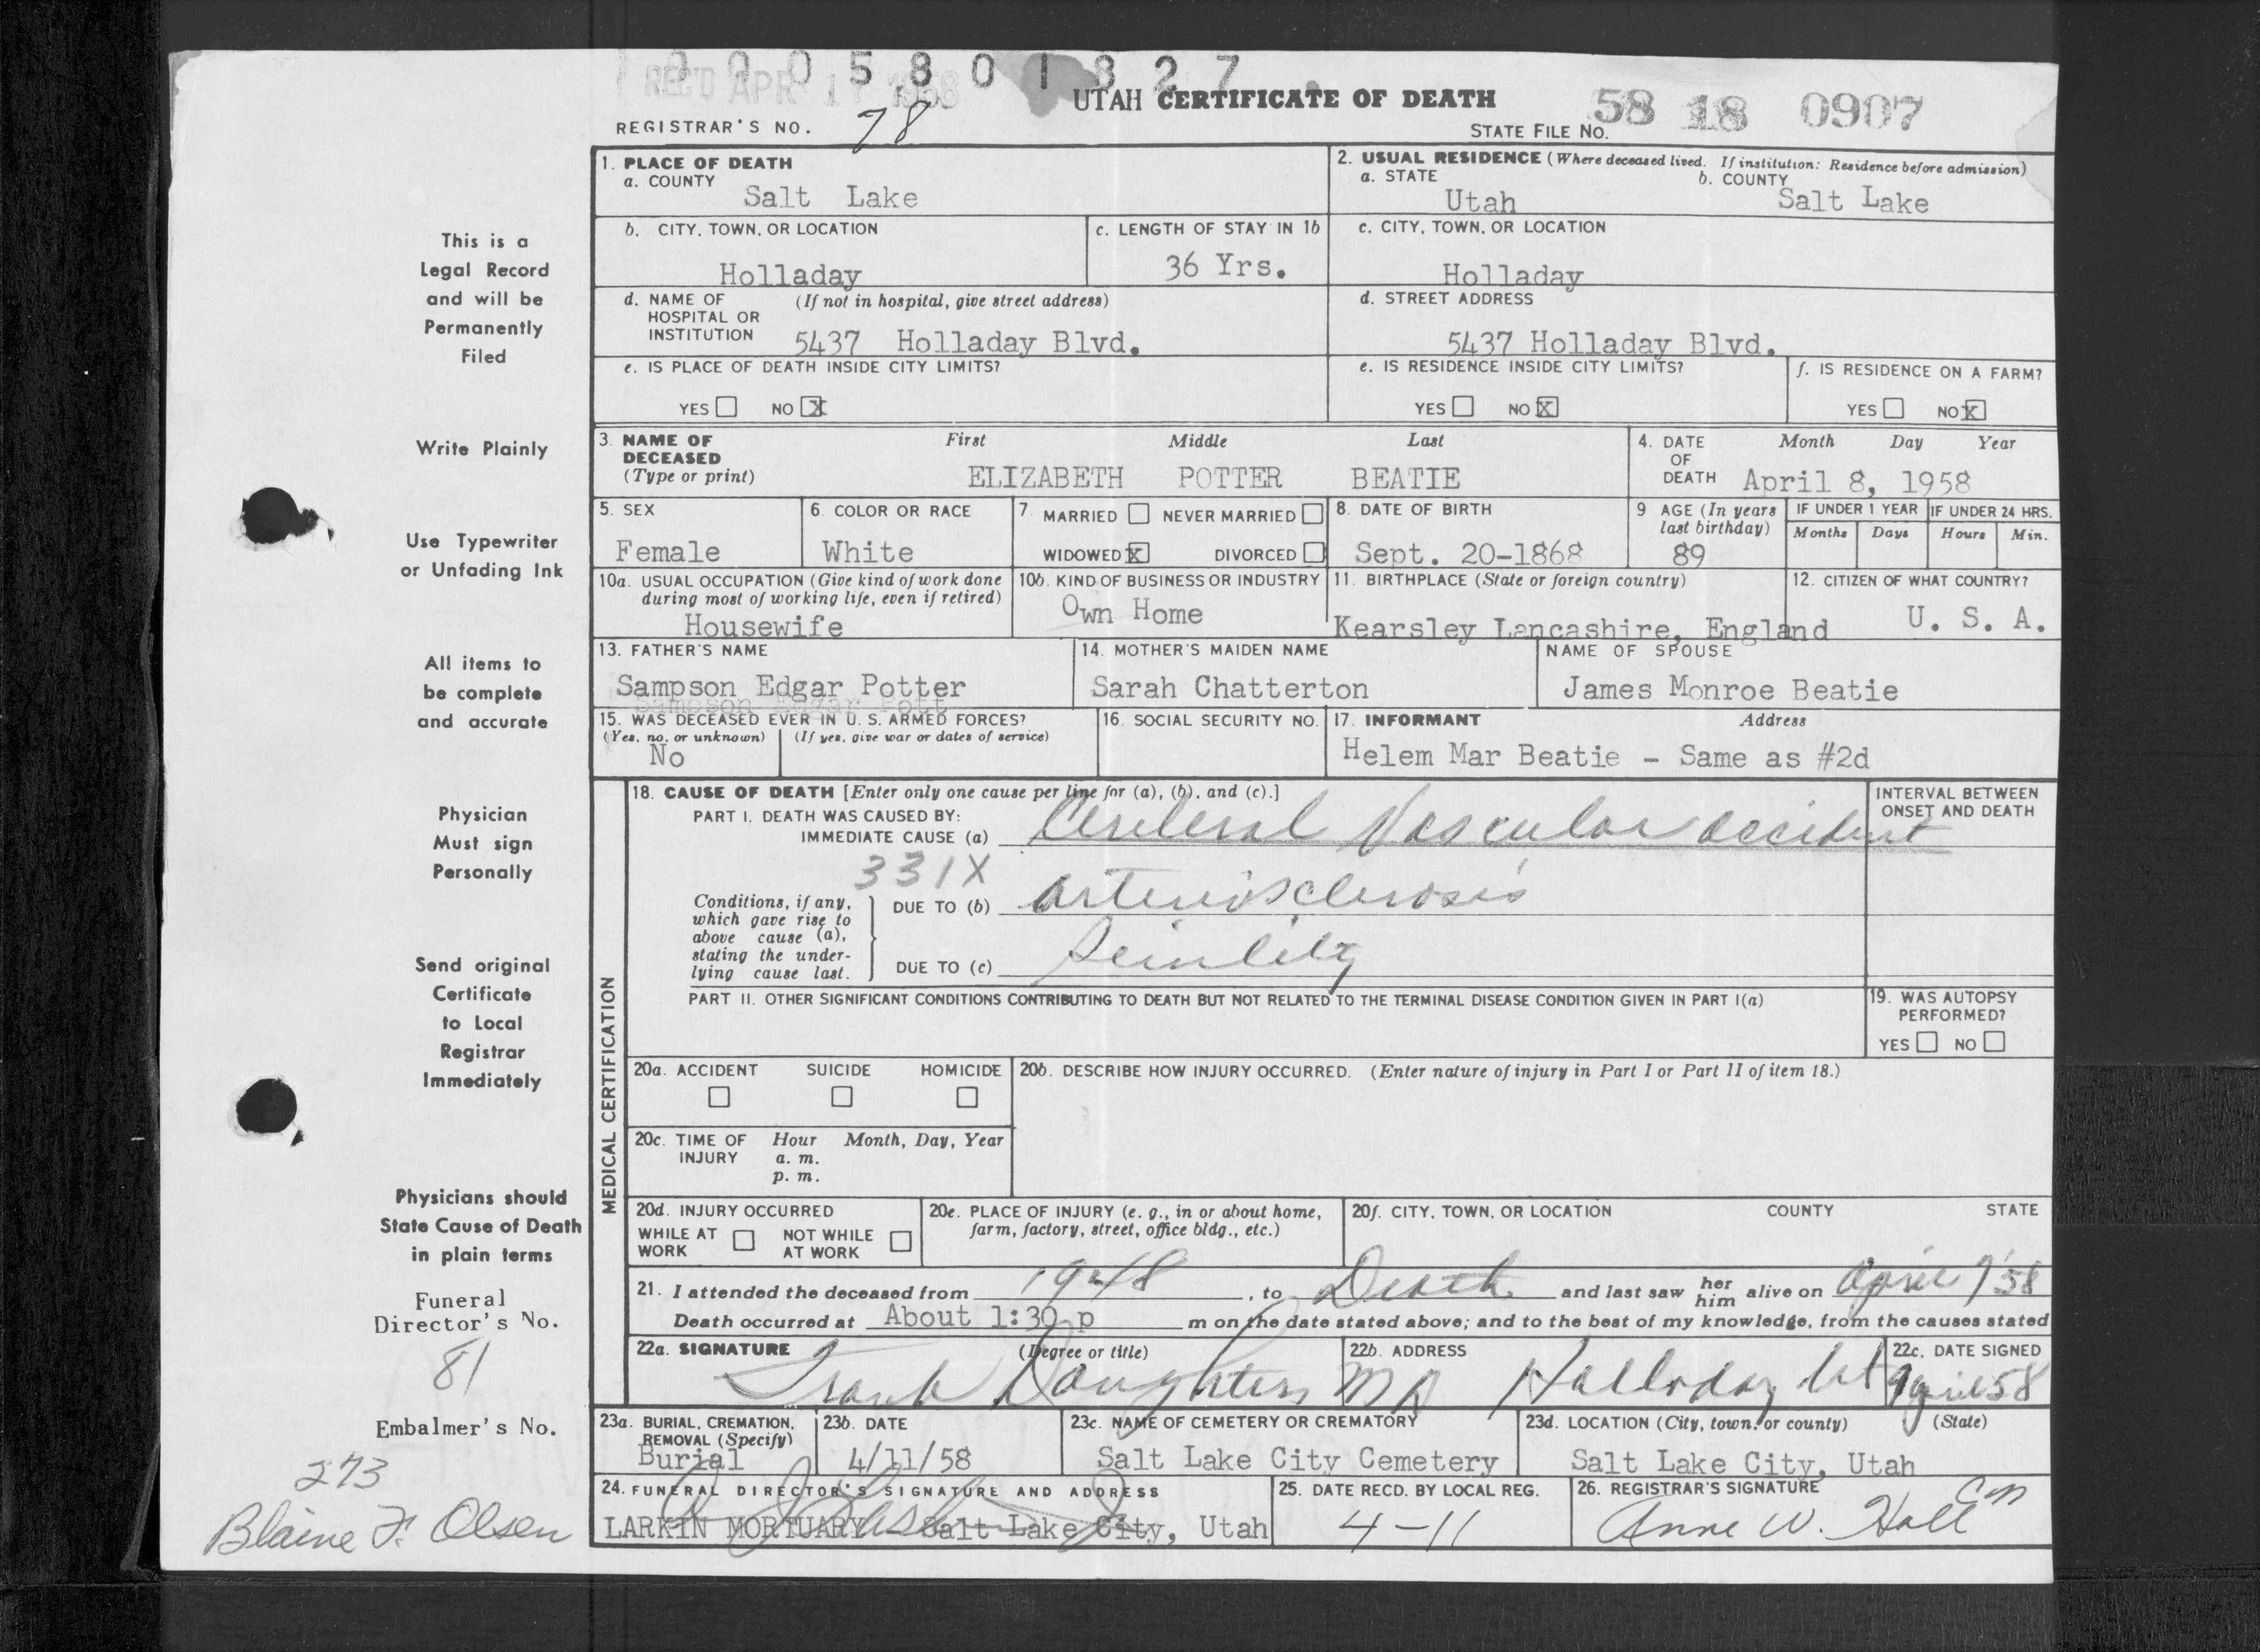 0005801827
REC'D APR 11 1958
UTAH CERTIFICATE OF DEATH
REGISTRAR'S NO. 78
STATE FILE NO. 58 18 0907
This is a
Legal Record
and will be
Permanently
Filed
Write Plainly
Use Typewriter
or Unfading Ink
All items to
be complete
and accurate
Physician
Must sign
Personally
Send original
Certificate
to Local
Registrar
Immediately
Physicians should
State Cause of Death
in plain terms
Funeral
Director's No.
81
Embalmer's No.
273
Blaine F. Olsen
1. PLACE OF DEATH
a. COUNTY
Salt Lake
2. USUAL RESIDENCE (Where deceased lived. If institution: Residence before admission)
a. STATE b. COUNTY
Utah Salt Lake
b. CITY, TOWN, OR LOCATION
Holladay
c. LENGTH OF STAY IN 1b
36 Yrs.
c. CITY, TOWN, OR LOCATION
Holladay
d. NAME OF (If not in hospital, give street address)
HOSPITAL OR
INSTITUTION 5437 Holladay Blvd.
d. STREET ADDRESS
5437 Holladay Blvd.
e. IS PLACE OF DEATH INSIDE CITY LIMITS?
YES NO X
e. IS RESIDENCE INSIDE CITY LIMITS?
YES NO X
f. IS RESIDENCE ON A FARM?
YES NO X
3. NAME OF DECEASED First Middle Last
(Type or print) ELIZABETH POTTER BEATIE
4. DATE OF DEATH Month Day Year
April 8, 1958
5. SEX
Female
6. COLOR OR RACE
White
7. MARRIED NEVER MARRIED
WIDOWED X DIVORCED
8. DATE OF BIRTH
Sept. 20-1868
9 AGE (In years last birthday)
89
IF UNDER 1 YEAR
Months Days
IF UNDER 24 HRS.
Hours Min.
10a. USUAL OCCUPATION (Give kind of work done
during most of working life, even if retired)
Housewife
10b. KIND OF BUSINESS OR INDUSTRY
Own Home
11. BIRTHPLACE (State or foreign country)
Kearsley Lancashire, England
12. CITIZEN OF WHAT COUNTRY?
U. S. A.
13. FATHER'S NAME
Sampson Edgar Potter
Sampson Edgar Pott
14. MOTHER'S MAIDEN NAME
Sarah Chatterton
NAME OF SPOUSE
James Monroe Beatie
15. WAS DECEASED EVER IN U. S. ARMED FORCES?
(Yes, no, or unknown) (If yes, give war or dates of service)
No
16. SOCIAL SECURITY NO.
17. INFORMANT Address
Helem Mar Beatie - Same as #2d
MEDICAL CERTIFICATION
18. CAUSE OF DEATH [Enter only one cause per line for (a), (b), and (c).]
INTERVAL BETWEEN
ONSET AND DEATH
PART I. DEATH WAS CAUSED BY:
IMMEDIATE CAUSE (a) Cerebral Vascular accident
331X
Conditions, if any,
which gave rise to
above cause (a),
stating the under-
lying cause last.
DUE TO (b) arteriosclerosis
DUE TO (c) Seinlity
PART II. OTHER SIGNIFICANT CONDITIONS CONTRIBUTING TO DEATH BUT NOT RELATED TO THE TERMINAL DISEASE CONDITION GIVEN IN PART I(a)
19. WAS AUTOPSY
PERFORMED?
YES NO
20a. ACCIDENT SUICIDE HOMICIDE
20b. DESCRIBE HOW INJURY OCCURRED. (Enter nature of injury in Part I or Part II of item 18.)
20c. TIME OF INJURY Hour Month, Day, Year
a. m.
p. m.
20d. INJURY OCCURRED
WHILE AT WORK NOT WHILE AT WORK
20e. PLACE OF INJURY (e. g., in or about home,
farm, factory, street, office bldg., etc.)
20f. CITY, TOWN, OR LOCATION COUNTY STATE
21. I attended the deceased from 1948, to Death and last saw her him alive on April 7 '58
Death occurred at About 1:30 p m on the date stated above; and to the best of my knowledge, from the causes stated
22a. SIGNATURE (Degree or title)
Frank MD
22b. ADDRESS
Holladay Ut
22c. DATE SIGNED
9 april 58
23a. BURIAL, CREMATION,
REMOVAL (Specify)
Burial
23b. DATE
4/11/58
23c. NAME OF CEMETERY OR CREMATORY
Salt Lake City Cemetery
23d. LOCATION (City, town, or county) (State)
Salt Lake City, Utah
24. FUNERAL DIRECTOR'S SIGNATURE AND ADDRESS
LARKIN MORTUARY - Salt Lake City, Utah
25. DATE RECD. BY LOCAL REG.
4-11
26. REGISTRAR'S SIGNATURE
Anne W. Hall